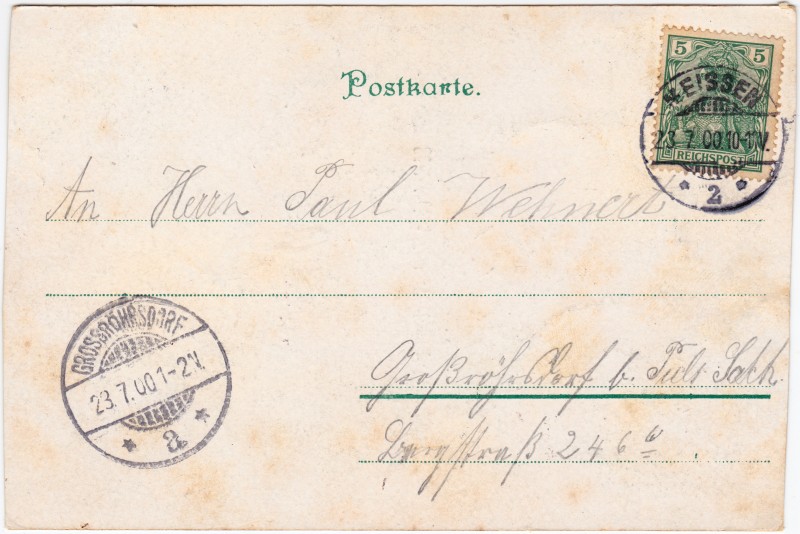 Postkarte.
5 5
REICHSPOST
MEISSEN
23.7.00.10-11V.
* 2 *
An Herrn Paul Wehnert
GROSSRÖHRSDORF
23.7.00.1-2V.
* a *
Großröhrsdorf b.
Bergstraße 246